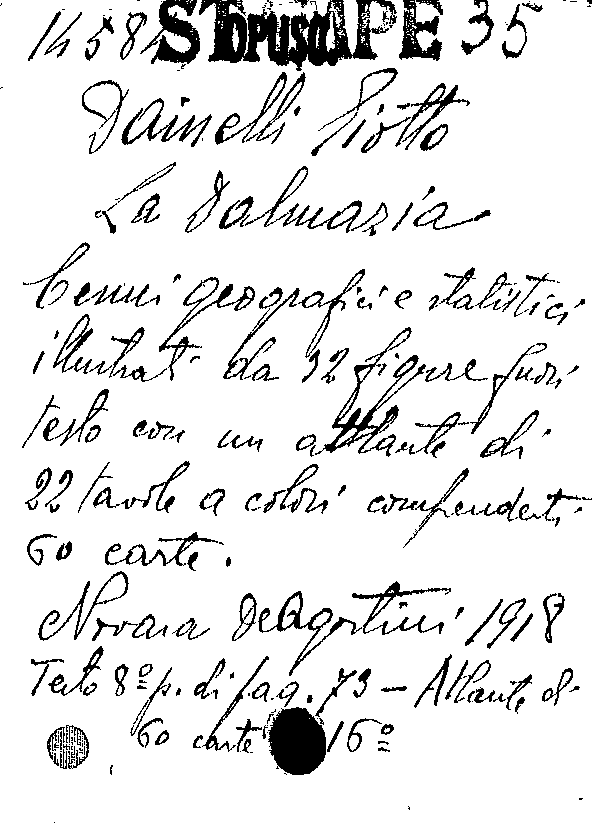 14584 STAMPE OPUSC. 35
Dainelli Giotto
La Dalmazia
Cenni geografici e statistici
illustrati da 32 figure fuori
testo con un atlante di
22 tavole a colori comprendenti
60 carte.
Novara DeAgostini 1918
Testo 8º p. di pag. 73 — Atlante di
60 carte 16º